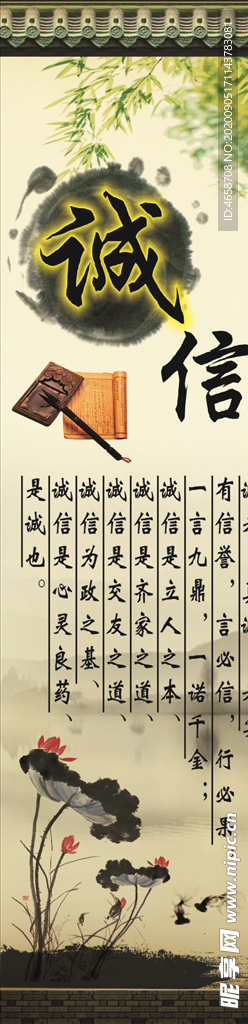 诚
信
有信誉，言必信，行必果
一言九鼎，一诺千金；
诚信是立人之本、
诚信是齐家之道、
诚信是交友之道、
诚信为政之基、
诚信是心灵良药、
是诚也。
ID:4658708 NO:20200905171143783081
昵享网 www.nipic.cn